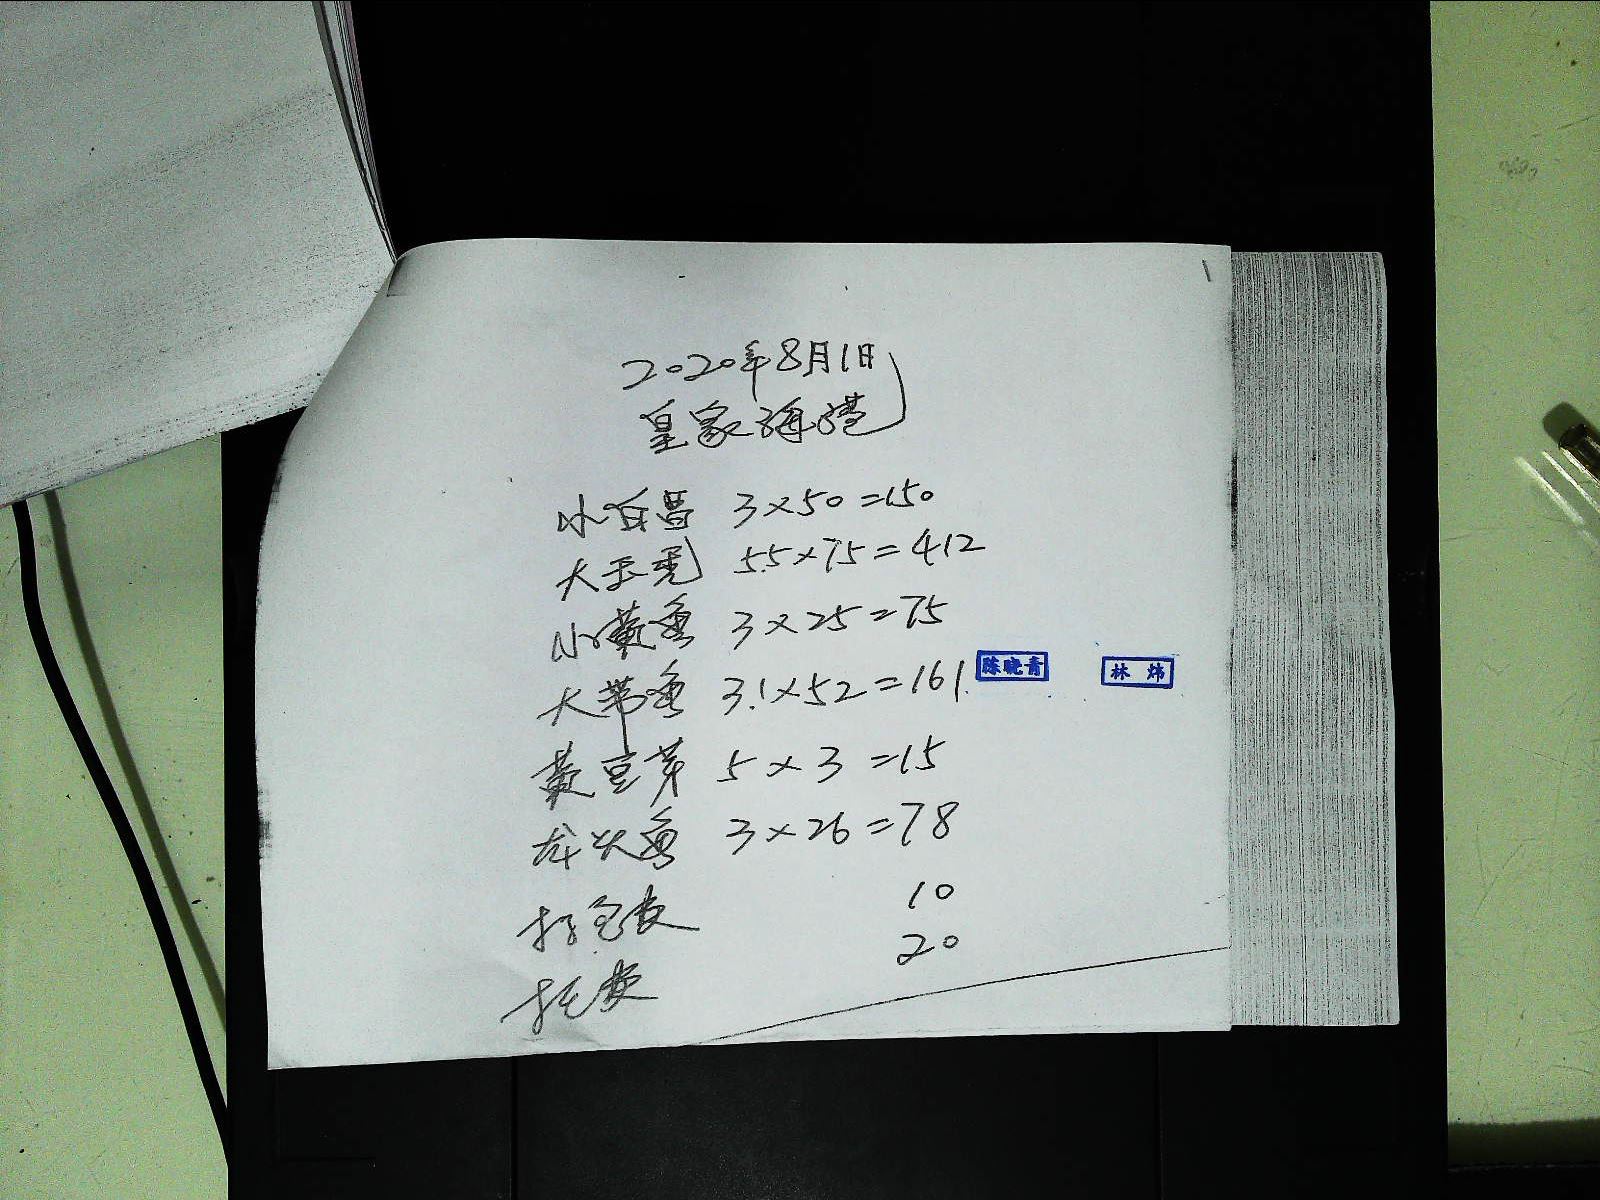 2020年8月1日
皇家海港
小白昌 3×50=150
大玉秃 5.5×75=412
小黄鱼 3×25=75
大带鱼 3.1×52=161
陈晓青 林炜
黄豆芽 5×3=15
龙头鱼 3×26=78
打包费 10
托费 20